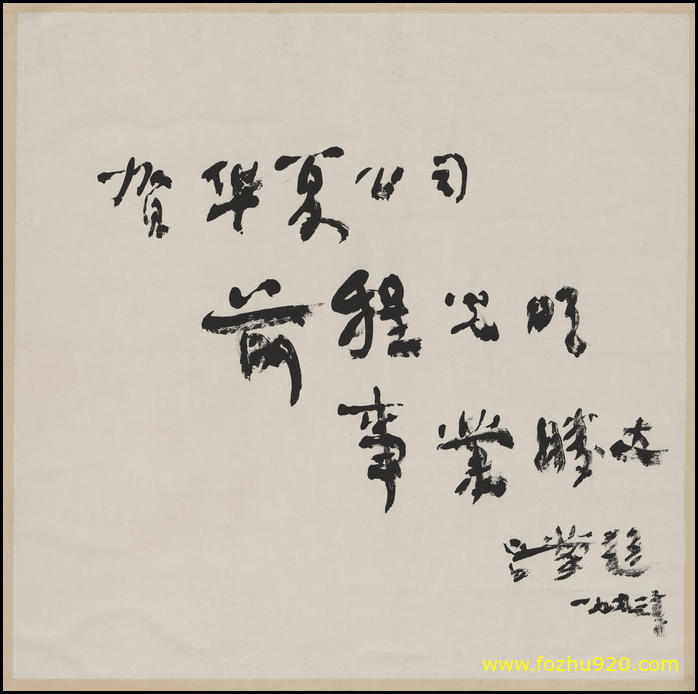 贺华夏公司
前程光明
事業勝
吕蒙题
一九九 年
www.fozhu920.com